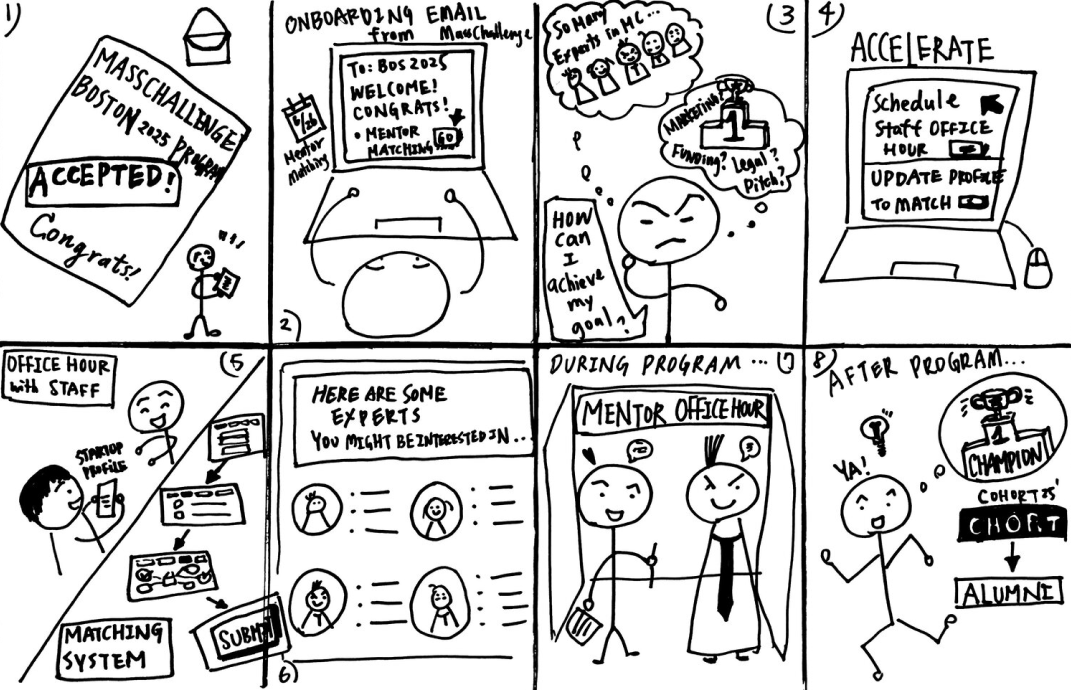 1)
MASSCHALLENGE
BOSTON 2025 PROGRAM
ACCEPTED!
Congrats!
2)
ONBOARDING EMAIL
from MassChallenge
TO: BOS 2025
WELCOME!
CONGRATS!
• MENTOR
MATCHING GO
Mentor
Matching
3
So Many
Experts in MC...
MARKETING?
1
FUNDING? Legal?
Pitch?
HOW
CAN
I
achieve
my
goal?
4)
ACCELERATE
Schedule
Staff OFFICE
HOUR
UPDATE PROFILE
TO MATCH
5
OFFICE HOUR
with STAFF
STARTUP
PROFILE
MATCHING
SYSTEM
SUBMIT
6)
HERE ARE SOME
EXPERTS
YOU MIGHT BE INTERESTED IN...
DURING PROGRAM...
MENTOR OFFICE HOUR
8)
AFTER PROGRAM...
YA!
1
CHAMPION
COHORT 25'
ALUMNI